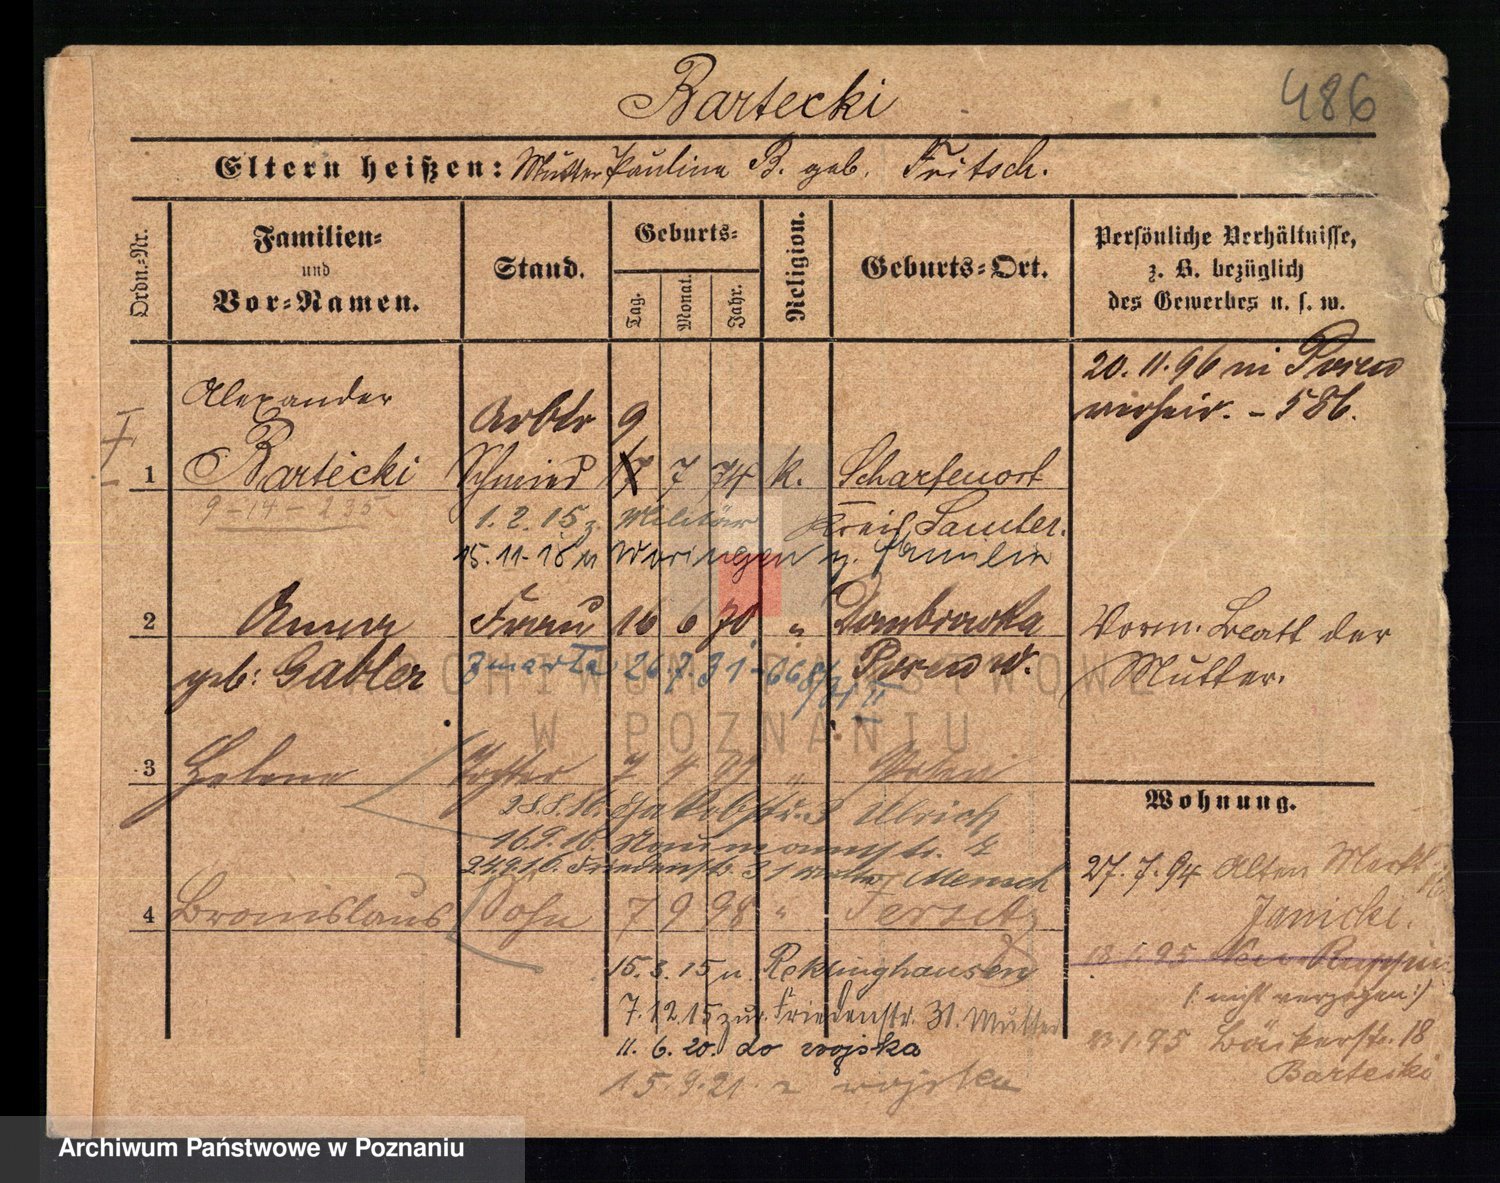 Bartecki
486
Eltern heißen: Mutter Paulina B. geb. Fritsch.
Ordn.-Nr.
Familien-
und
Vor-Namen.
Stand.
Geburts-
Tag.
Monat.
Jahr.
Religion.
Geburts-Ort.
Persönliche Verhältnisse,
z. B. bezüglich
des Gewerbes u. s. w.
20. 11. 96 in Posen
verheir. - 586.
Alexander Arbtr 9
I
1 Bartecki Schmied 7 74 k. Scharfenort
9-14-235 Kreis Samter.
1. 2. 15 z. Militär
15. 11. 18 n Woringen z. Familie
2 Anna Frau 16 6 70 " Dombrowka
geb: Gabler Posen W.
zmarła 26.7.31-668/31 II
Vorm. Blatt der
Mutter.
3 Helene Tochter 7 4 97 " Posen
28.8.16. Jakobstr. 3 Ulrich
16.9.16. Naumannstr.
24.9.16. Friedenstr. 31 Mensch
4 Bronislaus Sohn 7 9 98 " Jersitz
15. 3. 15 n. Reklinghausen
7. 12. 15 zur. Friedenstr. 31. Mutter
11. 6. 20. do wojska
15.9.21. z wojska
Wohnung.
27. 7. 94 Alten Markt
Janicki.
18 1. 95 Neu Ruppin
(: nicht verzogen :)
1. 95 Bäckerstr. 18
Bartecki
ARCHIWUM PAŃSTWOWE
W POZNANIU
Archiwum Państwowe w Poznaniu